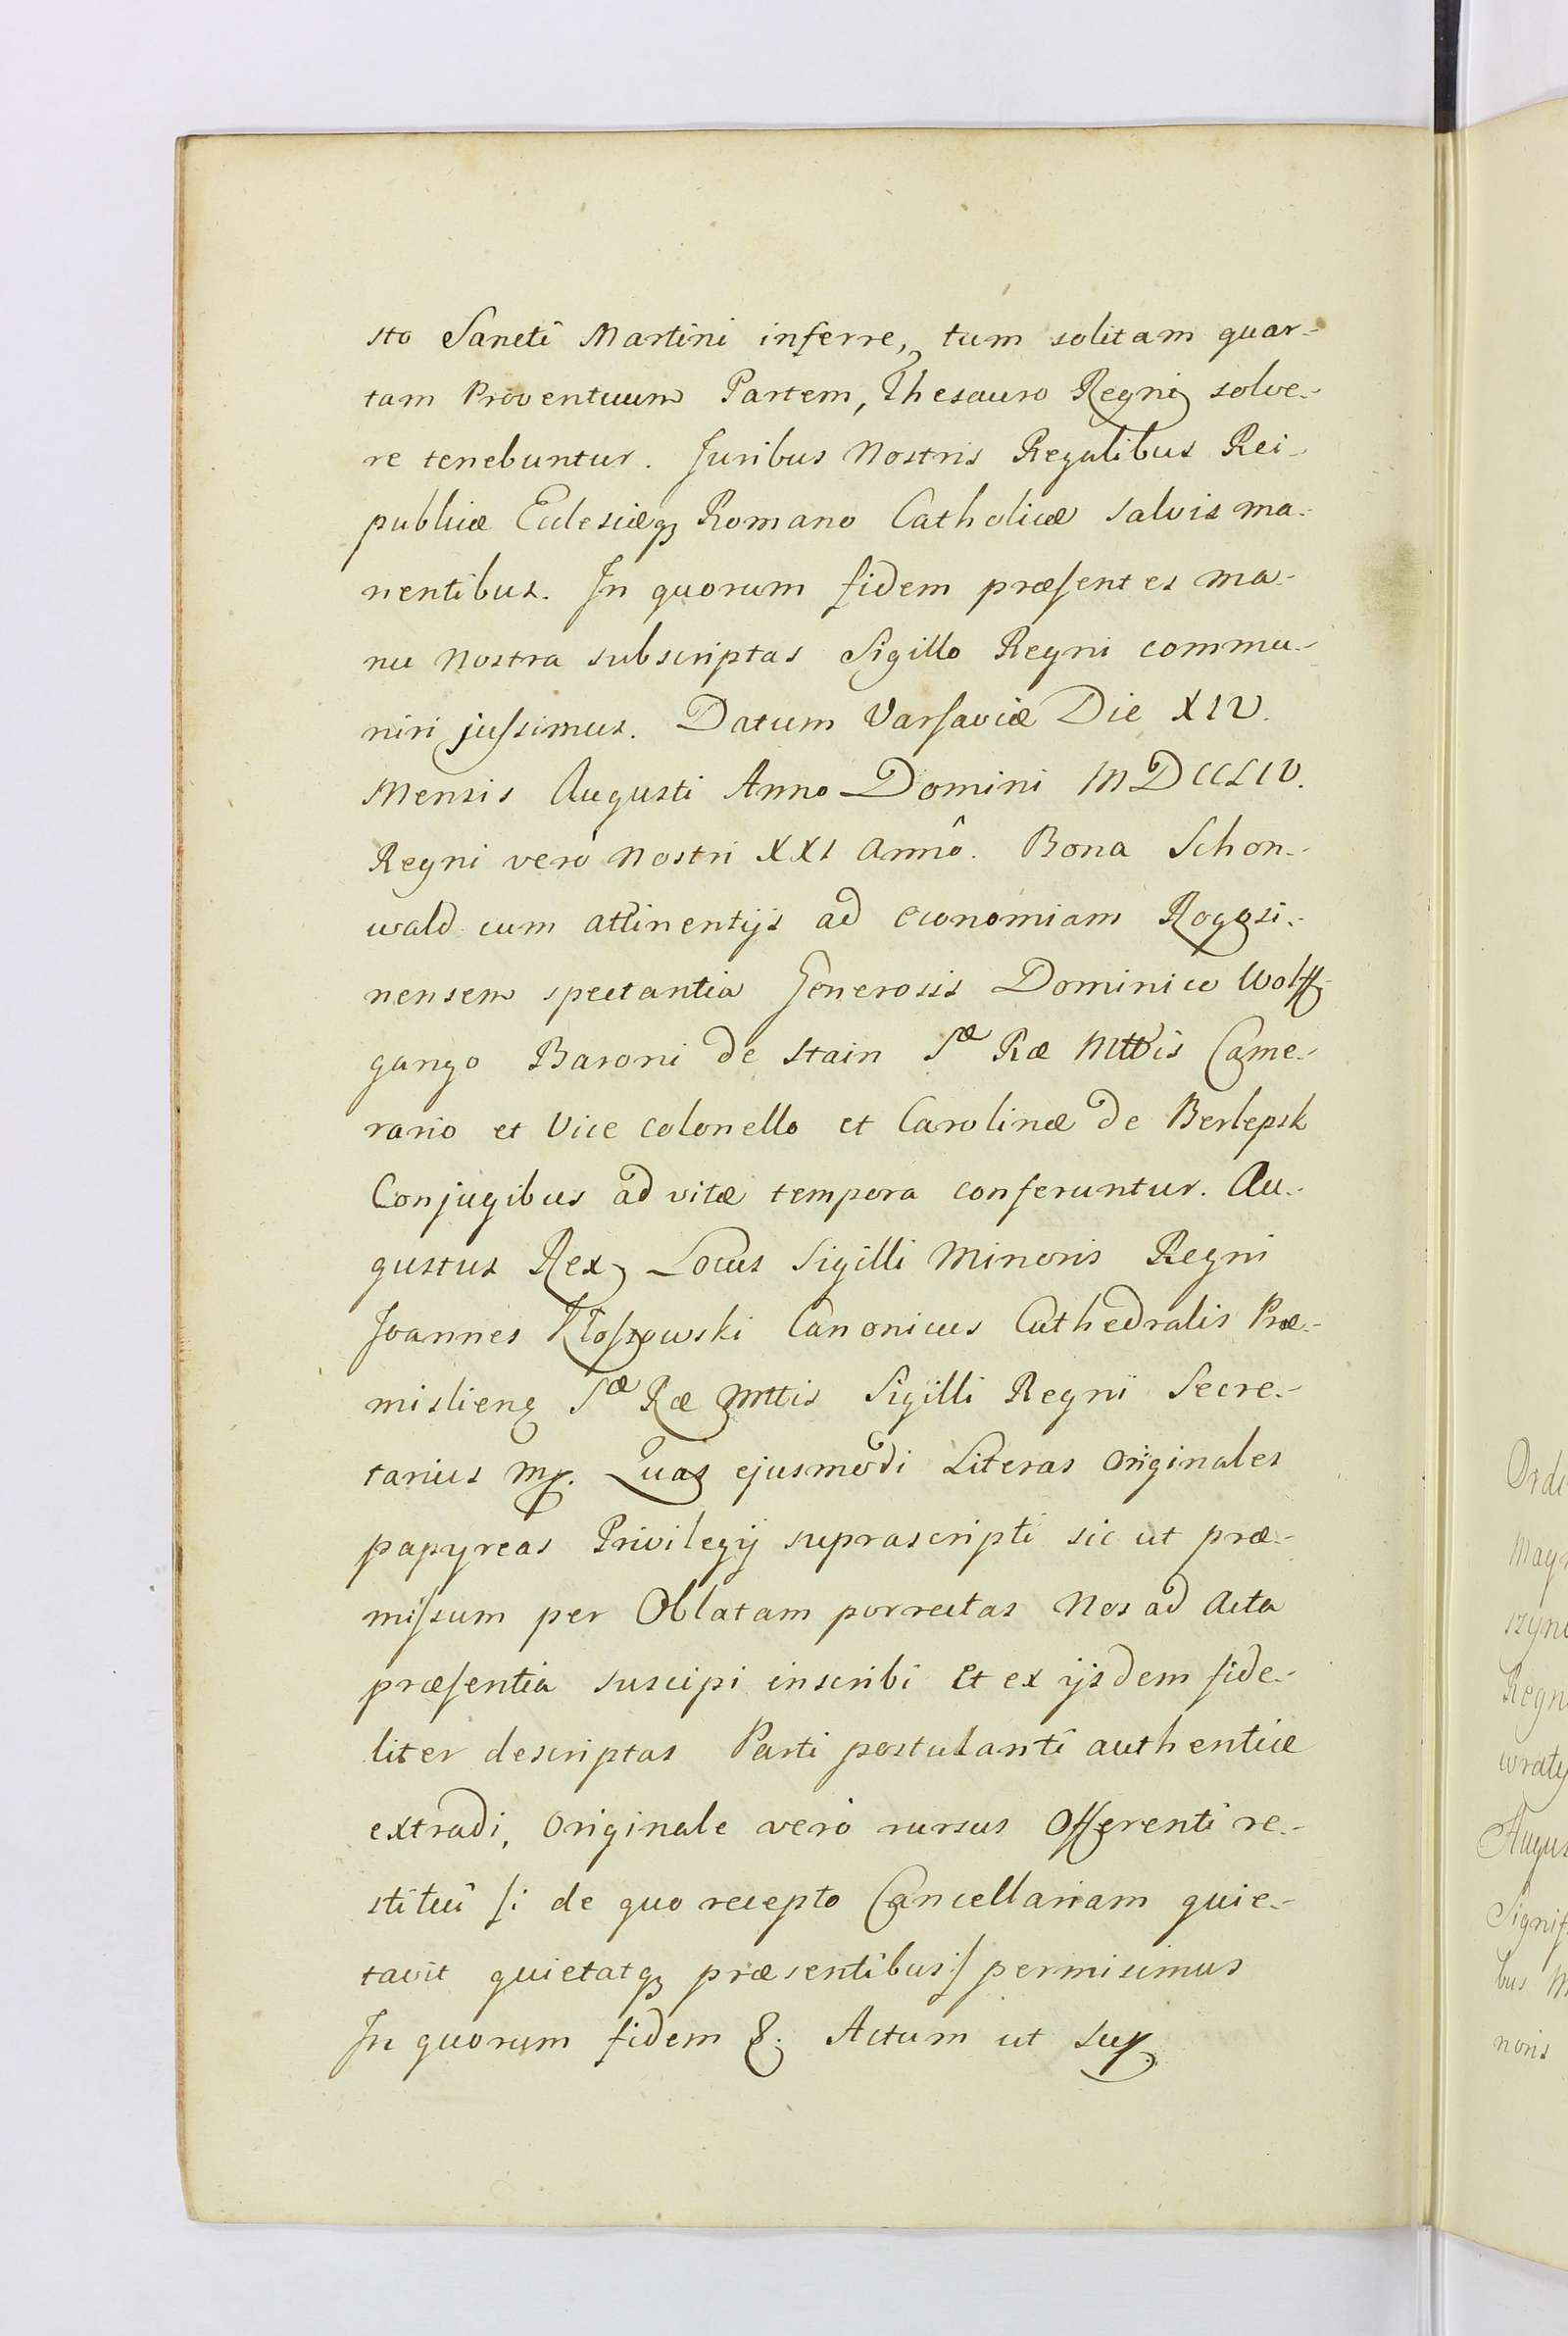 sto Sancti Martini inferre, tum solitam quar-
tam Proventuum Partem, Thesauro Regni solve-
re tenebuntur. Juribus Nostris Regalibus Rei-
publicæ Ecclesiæq₃ Romano Catholicæ salvis ma-
nentibus. In quorum fidem præsentes ma-
nu Nostra subscriptas Sigillo Regni commu-
niri jussimus. Datum Varsaviæ Die XIV.
Mensis Augusti Anno Domini MDCCLIV.
Regni verò Nostri XXI Annô. Bona Schon-
wald cum attinentijs ad economiam Rogozi-
nensem spectantia Generosis Dominico Wolff-
gango Baroni de Stain Sæ Ræ Mttis Came-
rario et Vice Colonello et Carolinæ de Berlepsk
Conjugibus ad vitæ tempora conferuntur. Au-
gustus Rex Locus Sigilli Minoris Regni
Joannes Canonicus Cathedralis Præ-
mislien₃ Sæ Ræ Mttis Sigilli Regni Secre-
tarius mp. Quas ejusmodi Literas Originales
papyreas Privilegij suprascripti sic ut præ-
missum per Oblatam porrectas Nos ad Acta
præsentia suscipi inscribi et ex ijsdem fide-
liter descriptas Parti postulanti authentice
extradi, Originale verò rursus Offerenti re-
stitui /: de quo recepto Cancellariam quie-
tavit quietatq₃ præsentibus :/ permisimus
In quorum fidem &. Actum ut sup.
Ordi
Mag
szyn
Regn
wraty
Augus
Signif
bus M
noris